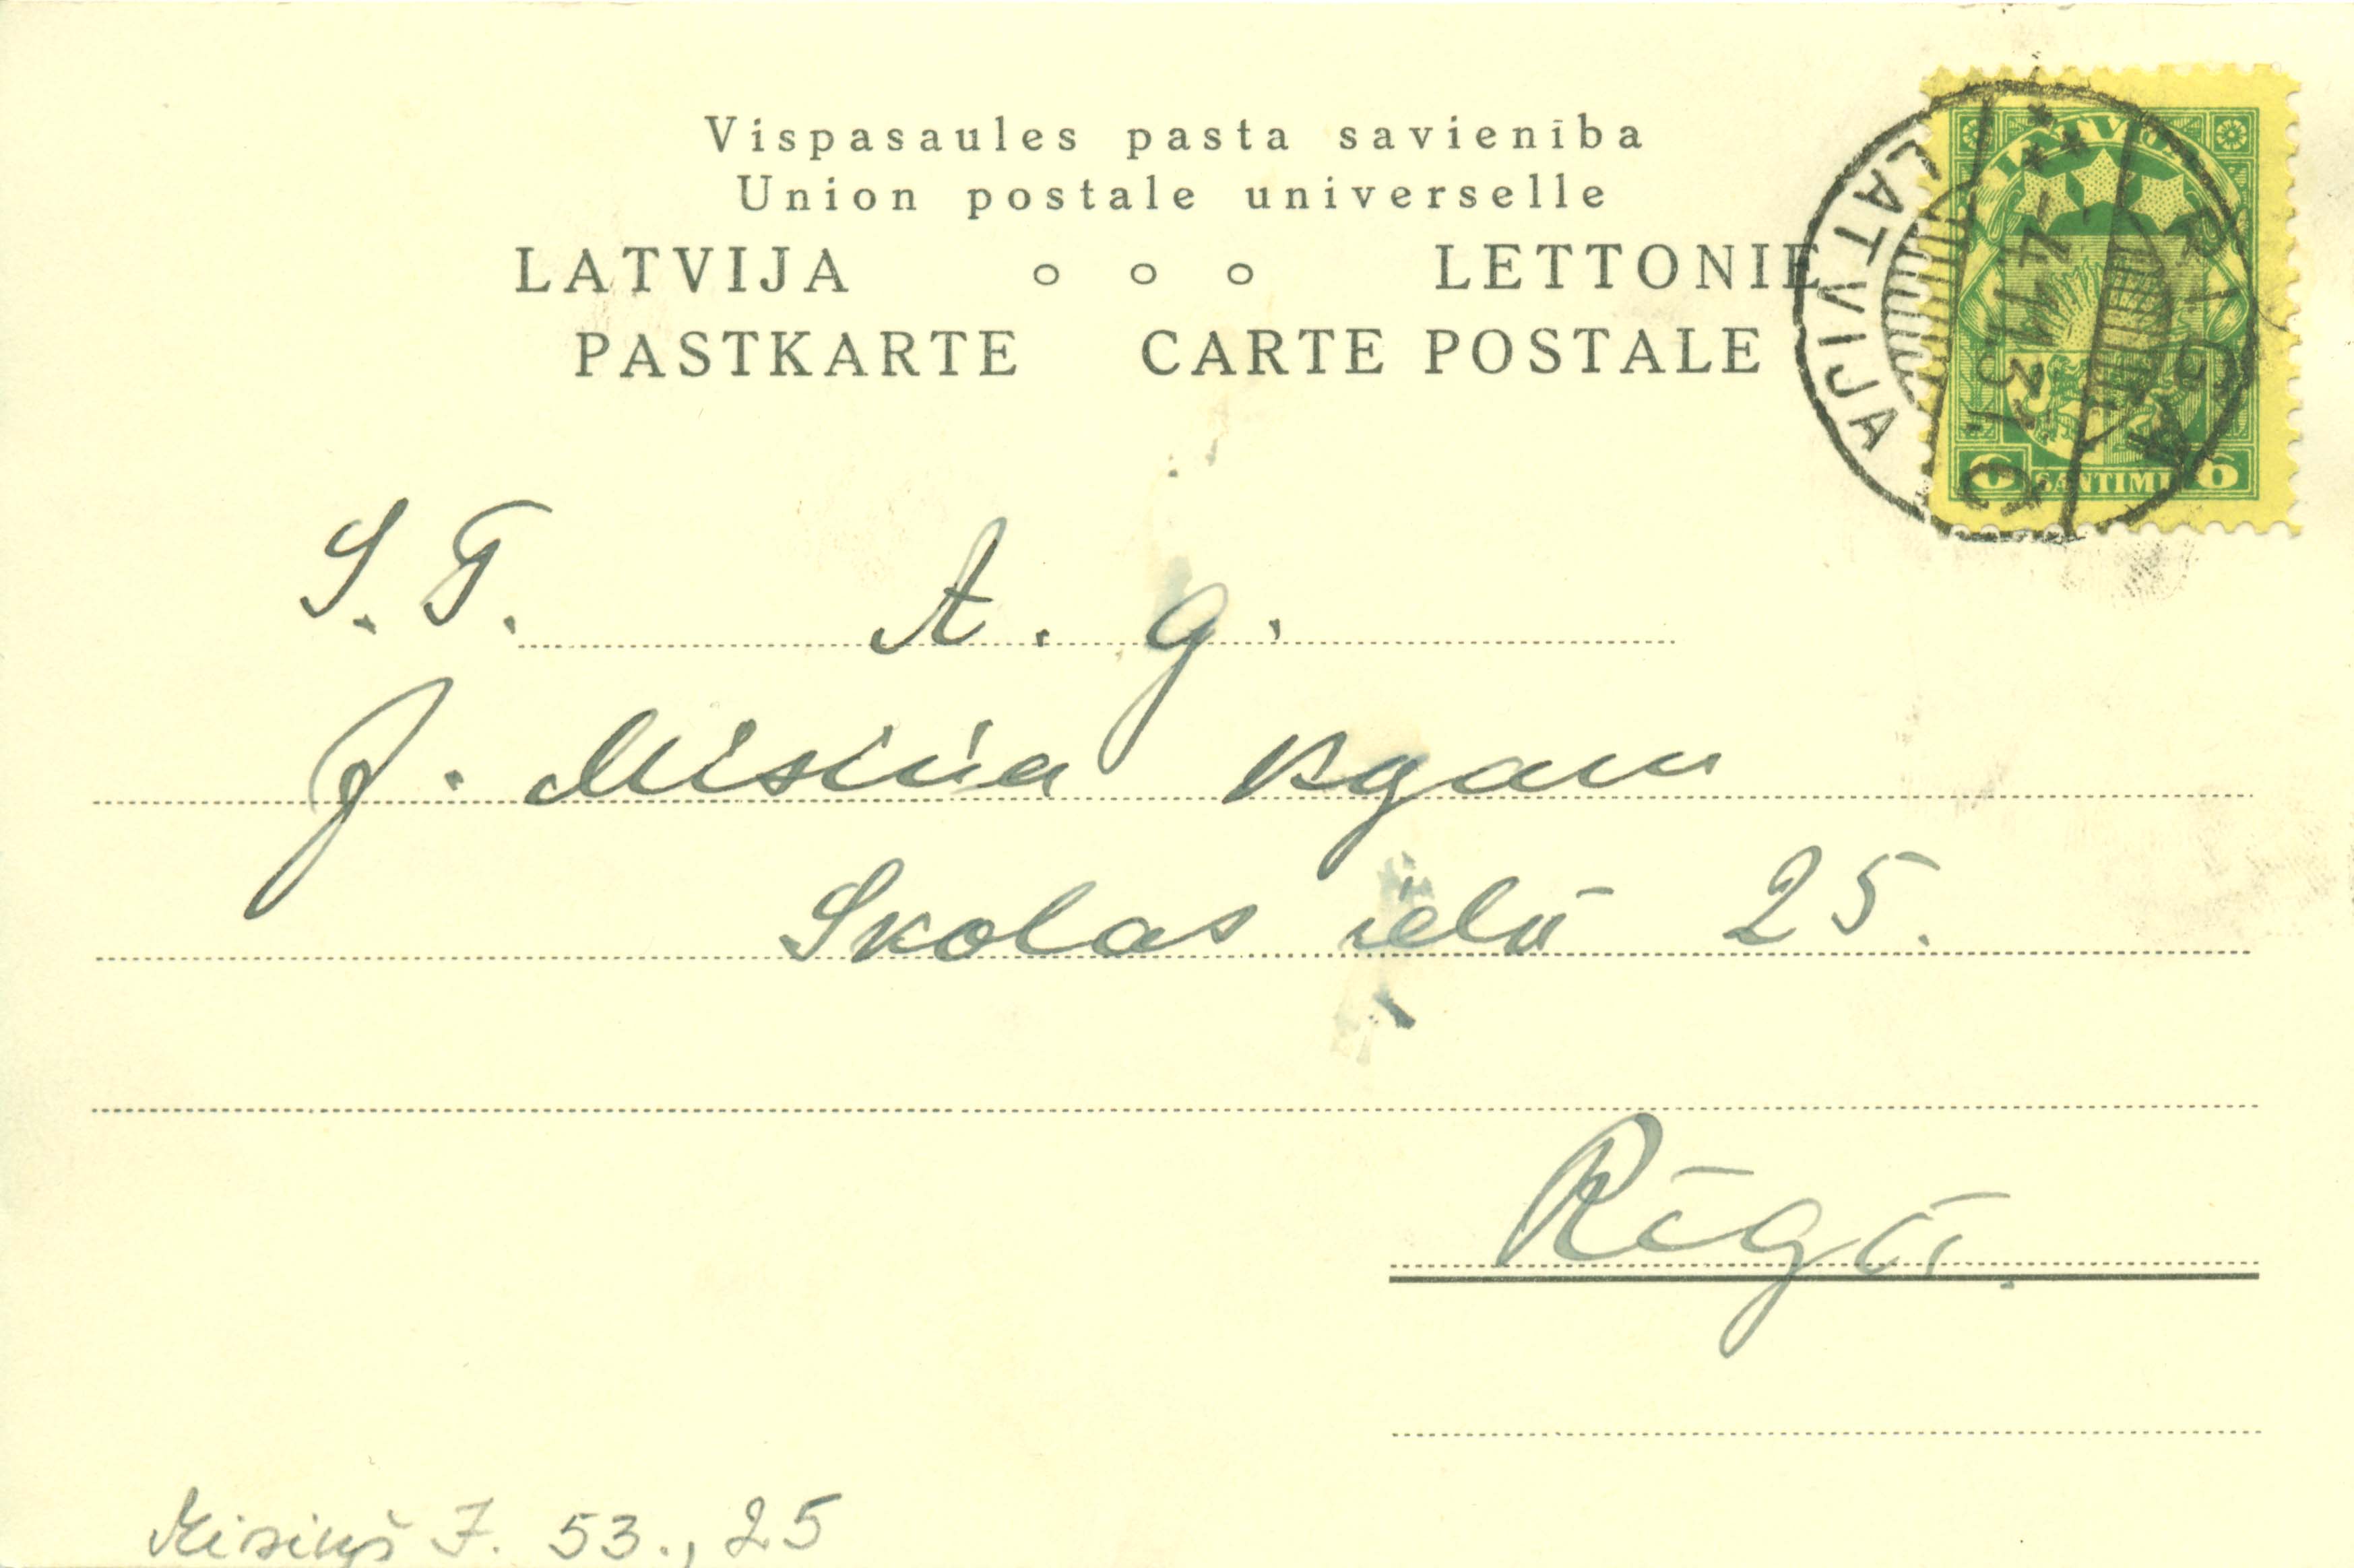 Vispasaules pasta savienība
Union postale universelle
LATVIJA o o o LETTONIE
PASTKARTE CARTE POSTALE
LATVIJA
RIGA
-4.11.31.6
LATVIJA
6 SANTIMI 6
S. T. A. g.
J. Misiņa kgam
Skolas ielā 25.
Rīgā.
Misiņš J. 53., 25